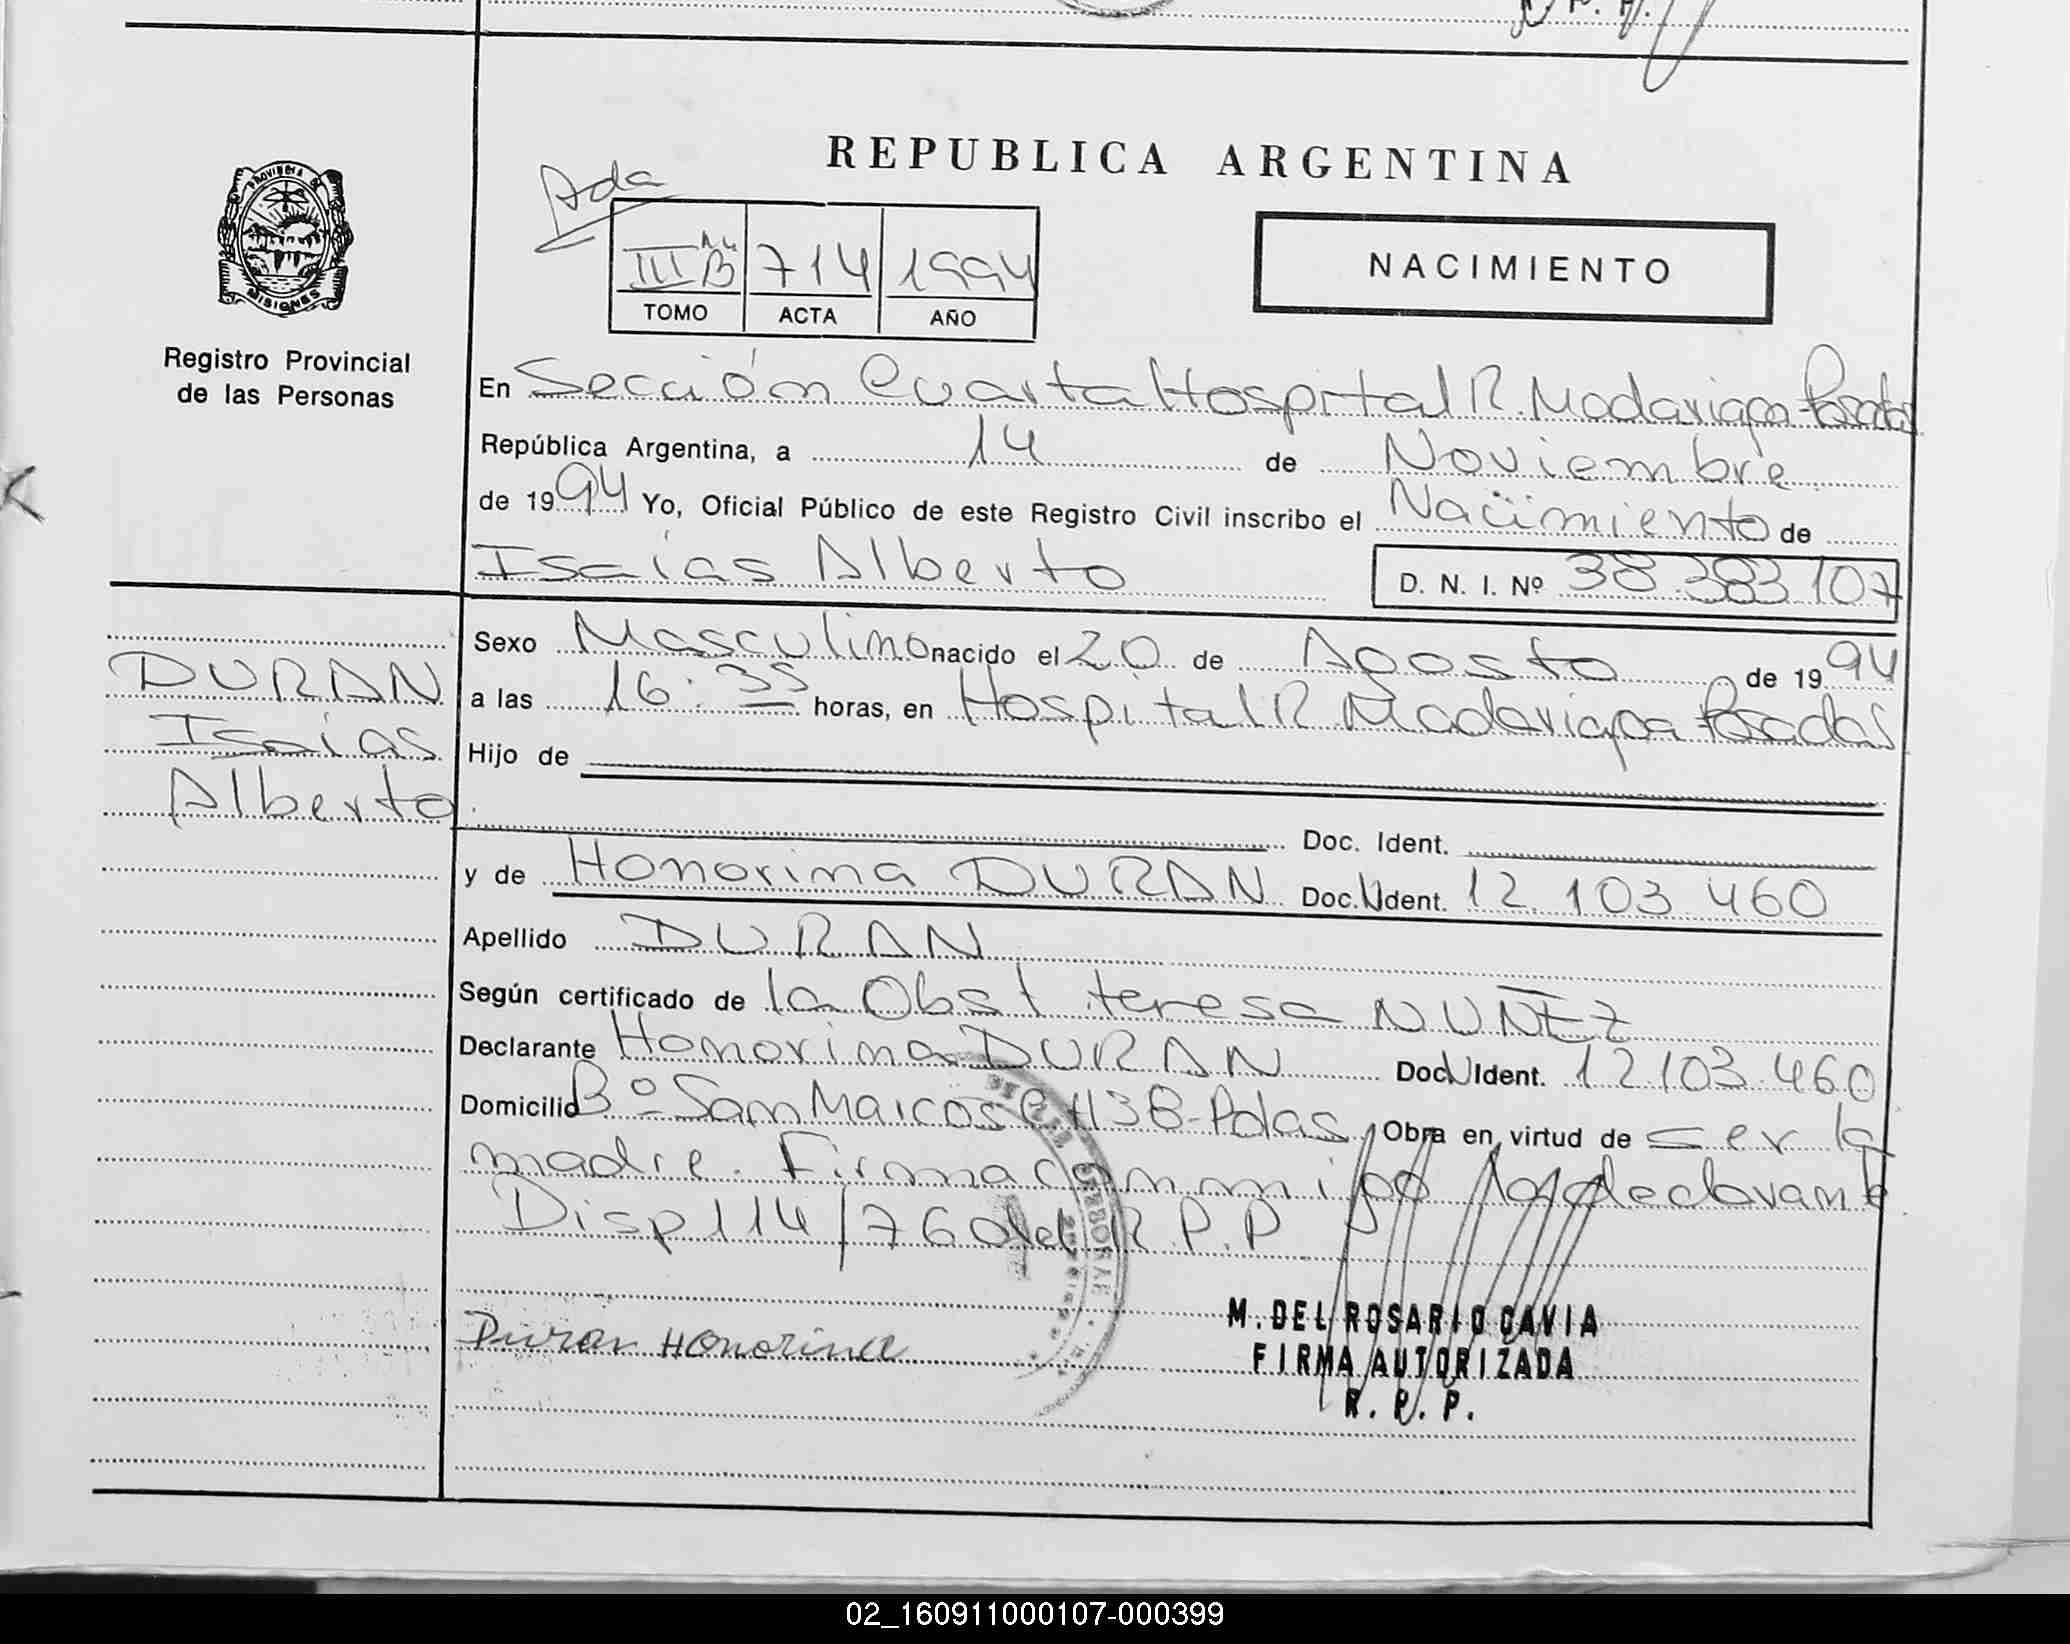 REPUBLICA ARGENTINA
Ada
III B 714 1994
TOMO ACTA AÑO
NACIMIENTO
PROVINCIA DE MISIONES
Registro Provincial
de las Personas
En Sección Cuarta Hospital R. Madariaga Posadas
República Argentina, a 14 de Noviembre
de 1994 Yo, Oficial Público de este Registro Civil inscribo el Nacimiento de
Isaias Alberto D. N. I. Nº 38.383.107
Sexo Masculino nacido el 20 de Agosto de 1994
a las 16:35 horas, en Hospital R Madariaga Posadas
Hijo de
DURAN
Isaias
Alberto
Doc. Ident.
y de Honorina DURAN Doc. U Ident. 12.103.460
Apellido DURAN
Según certificado de la Obst teresa NUÑEZ
Declarante Honorina DURAN Doc U Ident. 12.103.460
Domicilio Bº San Marcos C H 38-Pdas. Obra en virtud de ser la
madre. Firma conmigo la declarante
Disp 114/76 del R.P.P
Duran Honorina
M. DEL ROSARIO GAVIA
FIRMA AUTORIZADA
R. P. P.
02_160911000107-000399